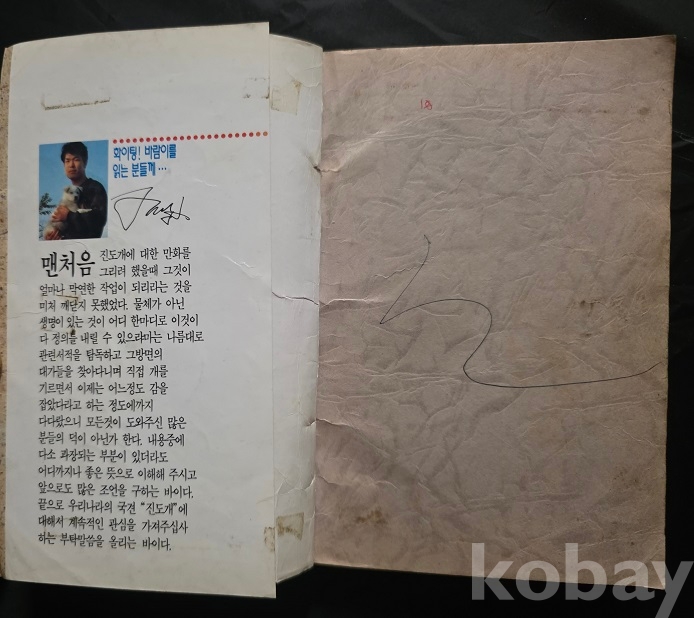 화이팅! 바람이를
읽는 분들께…
맨처음 진도개에 대한 만화를
그리려 했을때 그것이
얼마나 막연한 작업이 되리라는 것을
미처 깨닫지 못했었다. 물체가 아닌
생명이 있는 것이 어디 한마디로 이것이
다 정의를 내릴 수 있으랴마는 나름대로
관련서적을 탐독하고 그방면의
대가들을 찾아다니며 직접 개를
기르면서 이제는 어느정도 감을
잡았다라고 하는 정도에까지
다다랐으니 모든것이 도와주신 많은
분들의 덕이 아닌가 한다. 내용중에
다소 과장되는 부분이 있더라도
어디까지나 좋은 뜻으로 이해해 주시고
앞으로도 많은 조언을 구하는 바이다.
끝으로 우리나라의 국견 "진도개"에
대해서 계속적인 관심을 가져주십사
하는 부탁말씀을 올리는 바이다.
kobay